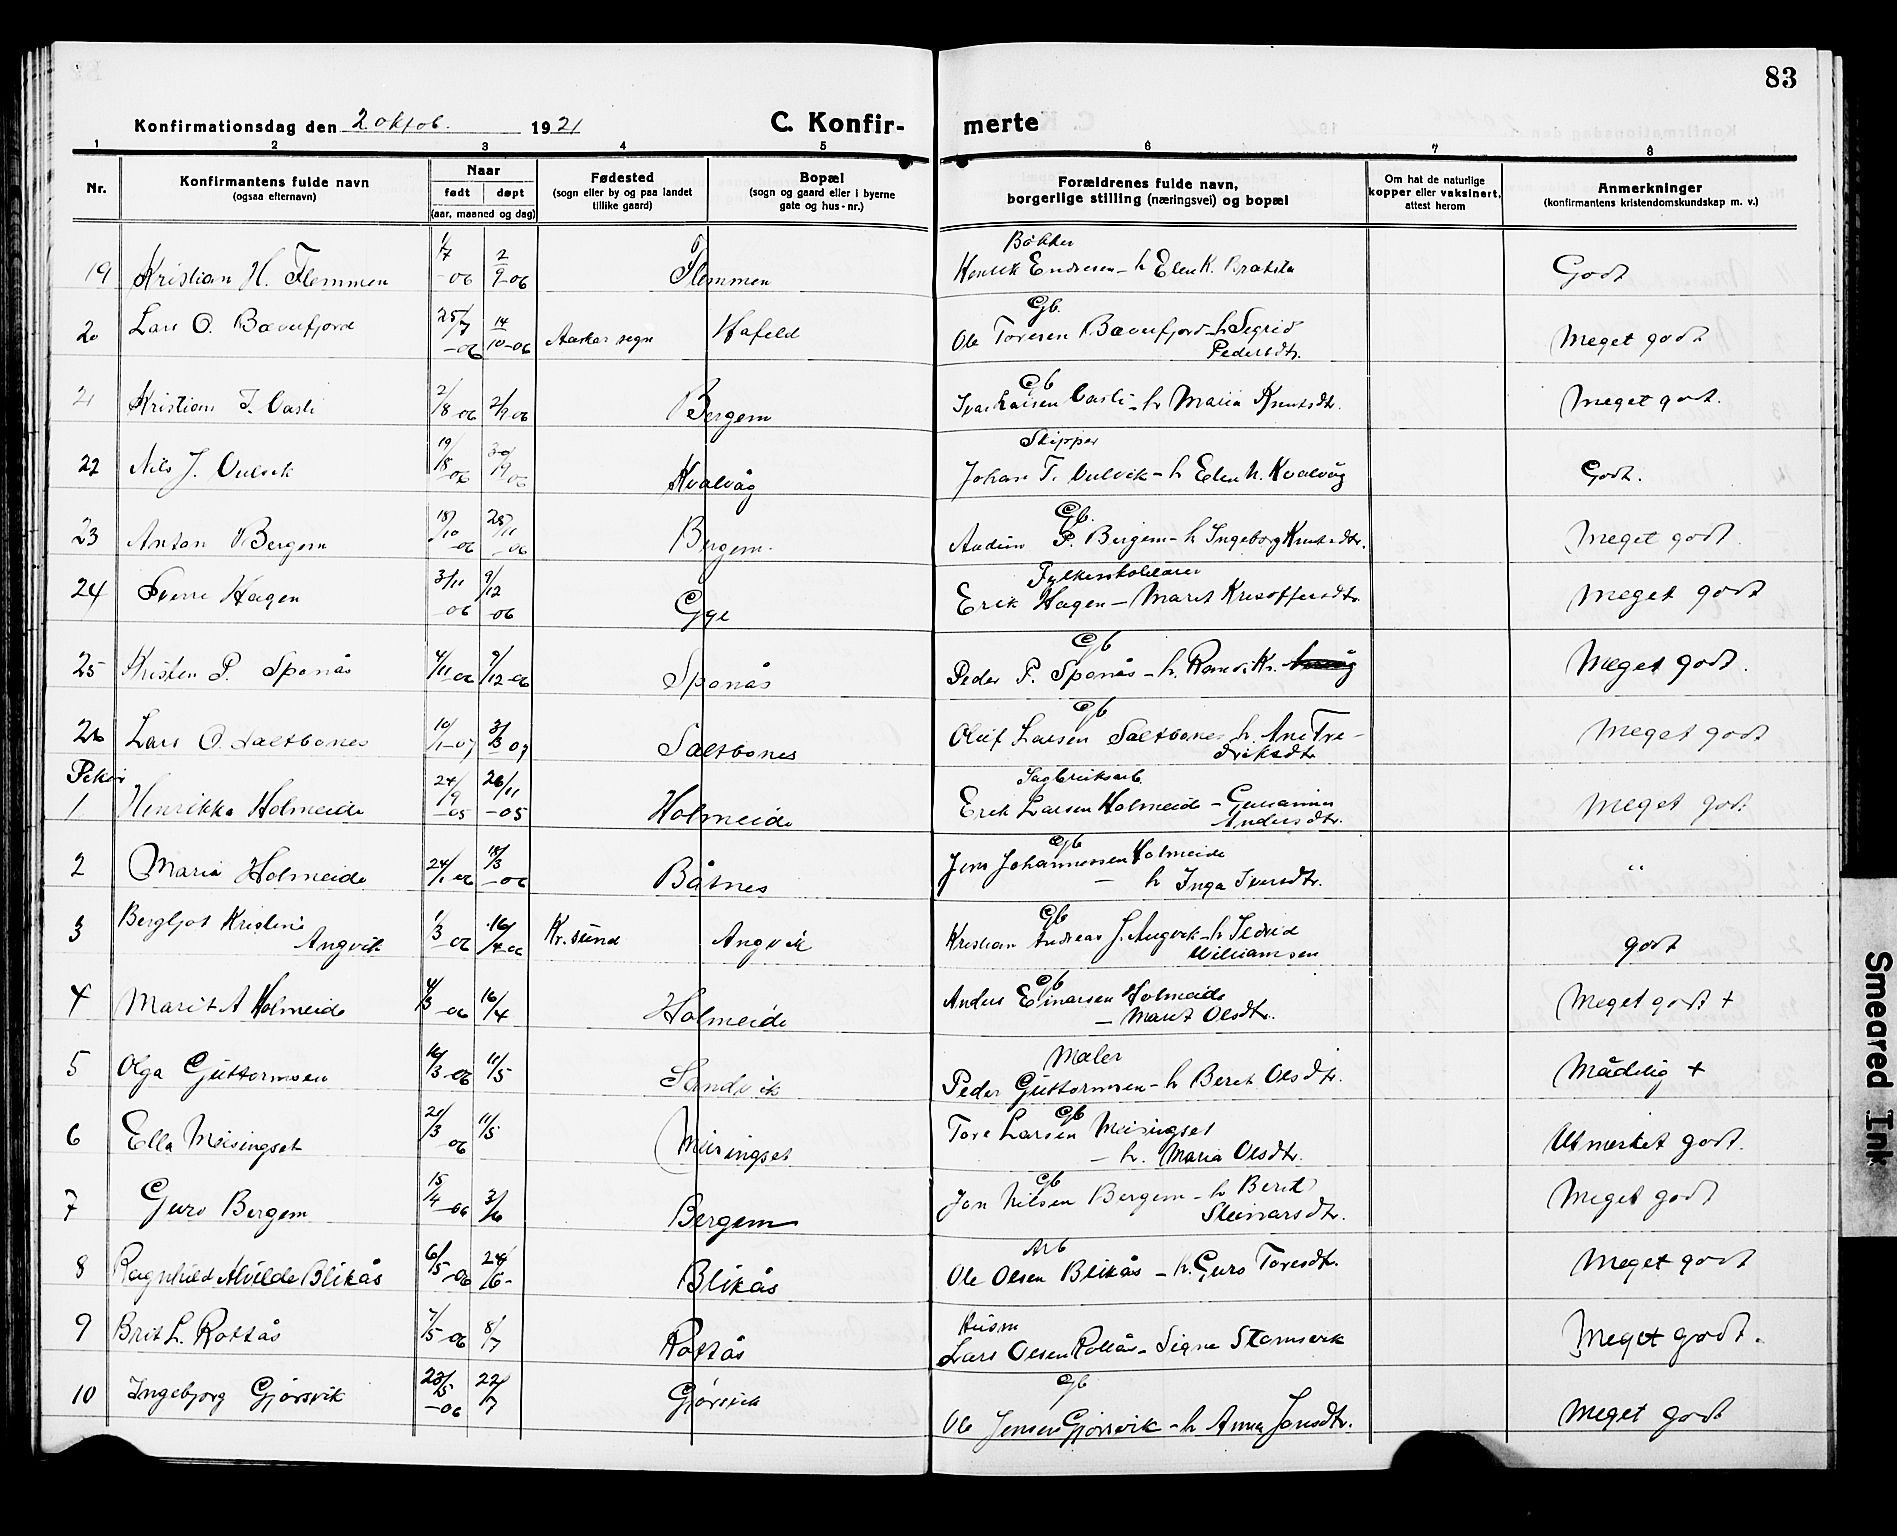 83
Konfirmationsdag den 2 oktob. 1921
C. Konfir- merte
1 2 3 4 5 6 7 8
Nr.
Konfirmantens fulde navn
(ogsaa efternavn)
Naar
født døpt
(aar, maaned og dag)
Fødested
(sogn eller by og paa landet
tillike gaard)
Bopæl
(sogn og gaard eller i byerne
gate og hus-nr.)
Forældrenes fulde navn,
borgerlige stilling (næringsvei) og bopæl
Om hat de naturlige
kopper eller vaksinert,
attest herom
Anmerkninger
(konfirmantens kristendomskundskap m. v.)
19 Kristian H. Flemmen 1/7 -06 2/9-06 Flemmen Bökker
Henrik Endresen - h Elen K. Godt
20 Lars O. Bæverfjord 25/7 -06 14/10-06 Aasker sogn Hafeld Gb.
Ole Toresen Bæverfjord - h Sigrid
Pedersdtr. Meget godt
21 Kristian I. Vasli 2/8 06 2/9 06 Bergem Gb
Ivar Larsen Vasli - h Maria Knutsdtr. Meget godt.
22 Nils J. Vulvik 19/8 -06 30/9 06 Kvalvåg Skipper
Johan T. Vulvik - h Elen N. Kvalvåg Godt.
23 Anton Bergem 18/10 -06 25/11 -06 Bergem. Gb.
Audun P. Bergem - h Ingeborg Knutsdtr. Meget godt.
24 Sverre Hagen 3/11 -06 9/12 -06 Gyl Fylkesskolelærer
Erik Hagen - Marit Kristoffersdtr. Meget godt
25 Kristen P. Sponås 4/11-06 9/12-06 Sponås Gb
Peder P. Sponås - h. Randi Kr. Meget godt.
26 Lars O. Saltbones 10/1-07 3/3 07 Saltbones Gb
Oluf Larsen Saltbones h. Ane Fre-
driksdtr Meget godt
Piker
1 Henrikka Holmeide 24/9 -05 26/11 -05 Holmeide Sagbruksarb.
Erik Larsen Holmeide -
Andersdtr. Meget godt
2 Maria Holmeide 24/1 06 18/3 -06 Båtnes Gb
Jens Johannessen Holmeide
— h Inga Iversdtr. "
3 Bergljot Kristine
Angvik 1/3 -06 16/4-06 Kr.sund Angvik Gb
Kristian Andreas J. Angvik - h
Williamsen godt
4 Marit A Holmeide 4/3 -06 16/4 Holmeide Gb
Anders Einarsen Holmeide
— Marit Olsdtr. Meget godt +
5 Olga Guttormsen 16/3 -06 11/5 Sandvik Maler
Peder Guttormsen - h Beret Olsdtr. Mådelig +
6 Ella Meisingset 21/3 06 11/5 Meisingset Gb
Tore Larsen Meisingset
— h. Maria Olsdtr. Utmerket godt.
7 Guro Bergem 15/4 -06 3/6 Bergem Gb
Jon Nilsen Bergem - h Berit
Steinarsdtr. Meget godt
8 Ragnhild Alvilde Blikås 6/5 -06 24/6- Blikås Arb
Ole Olsen Blikås - h. Guro Toresdtr. Meget godt
9 Brit L. Rottås 7/5 -06 8/7 Rottås Husm
Lars Olsen Rottås - Signe Stomsvik Meget godt.
10 Ingebjorg Gjørsvik 23/5 -06 22/7 Gjørsvik Gb
Ole Jensen Gjørsvik - h Anna Jonsdtr. Meget godt
Smeared Ink